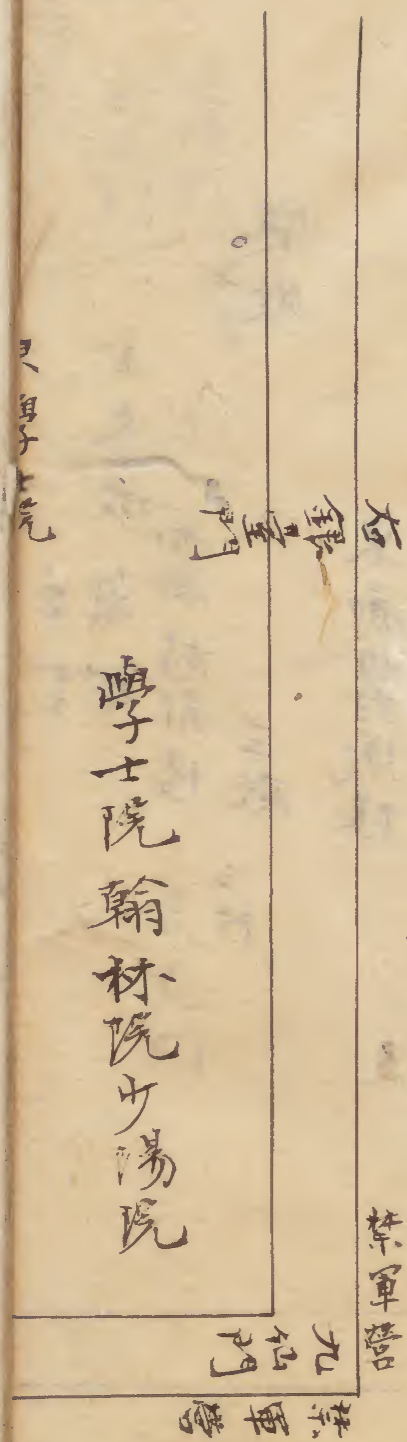 右
銀臺門
學士院翰林院少陽院
禁軍營
九仙門
禁軍營